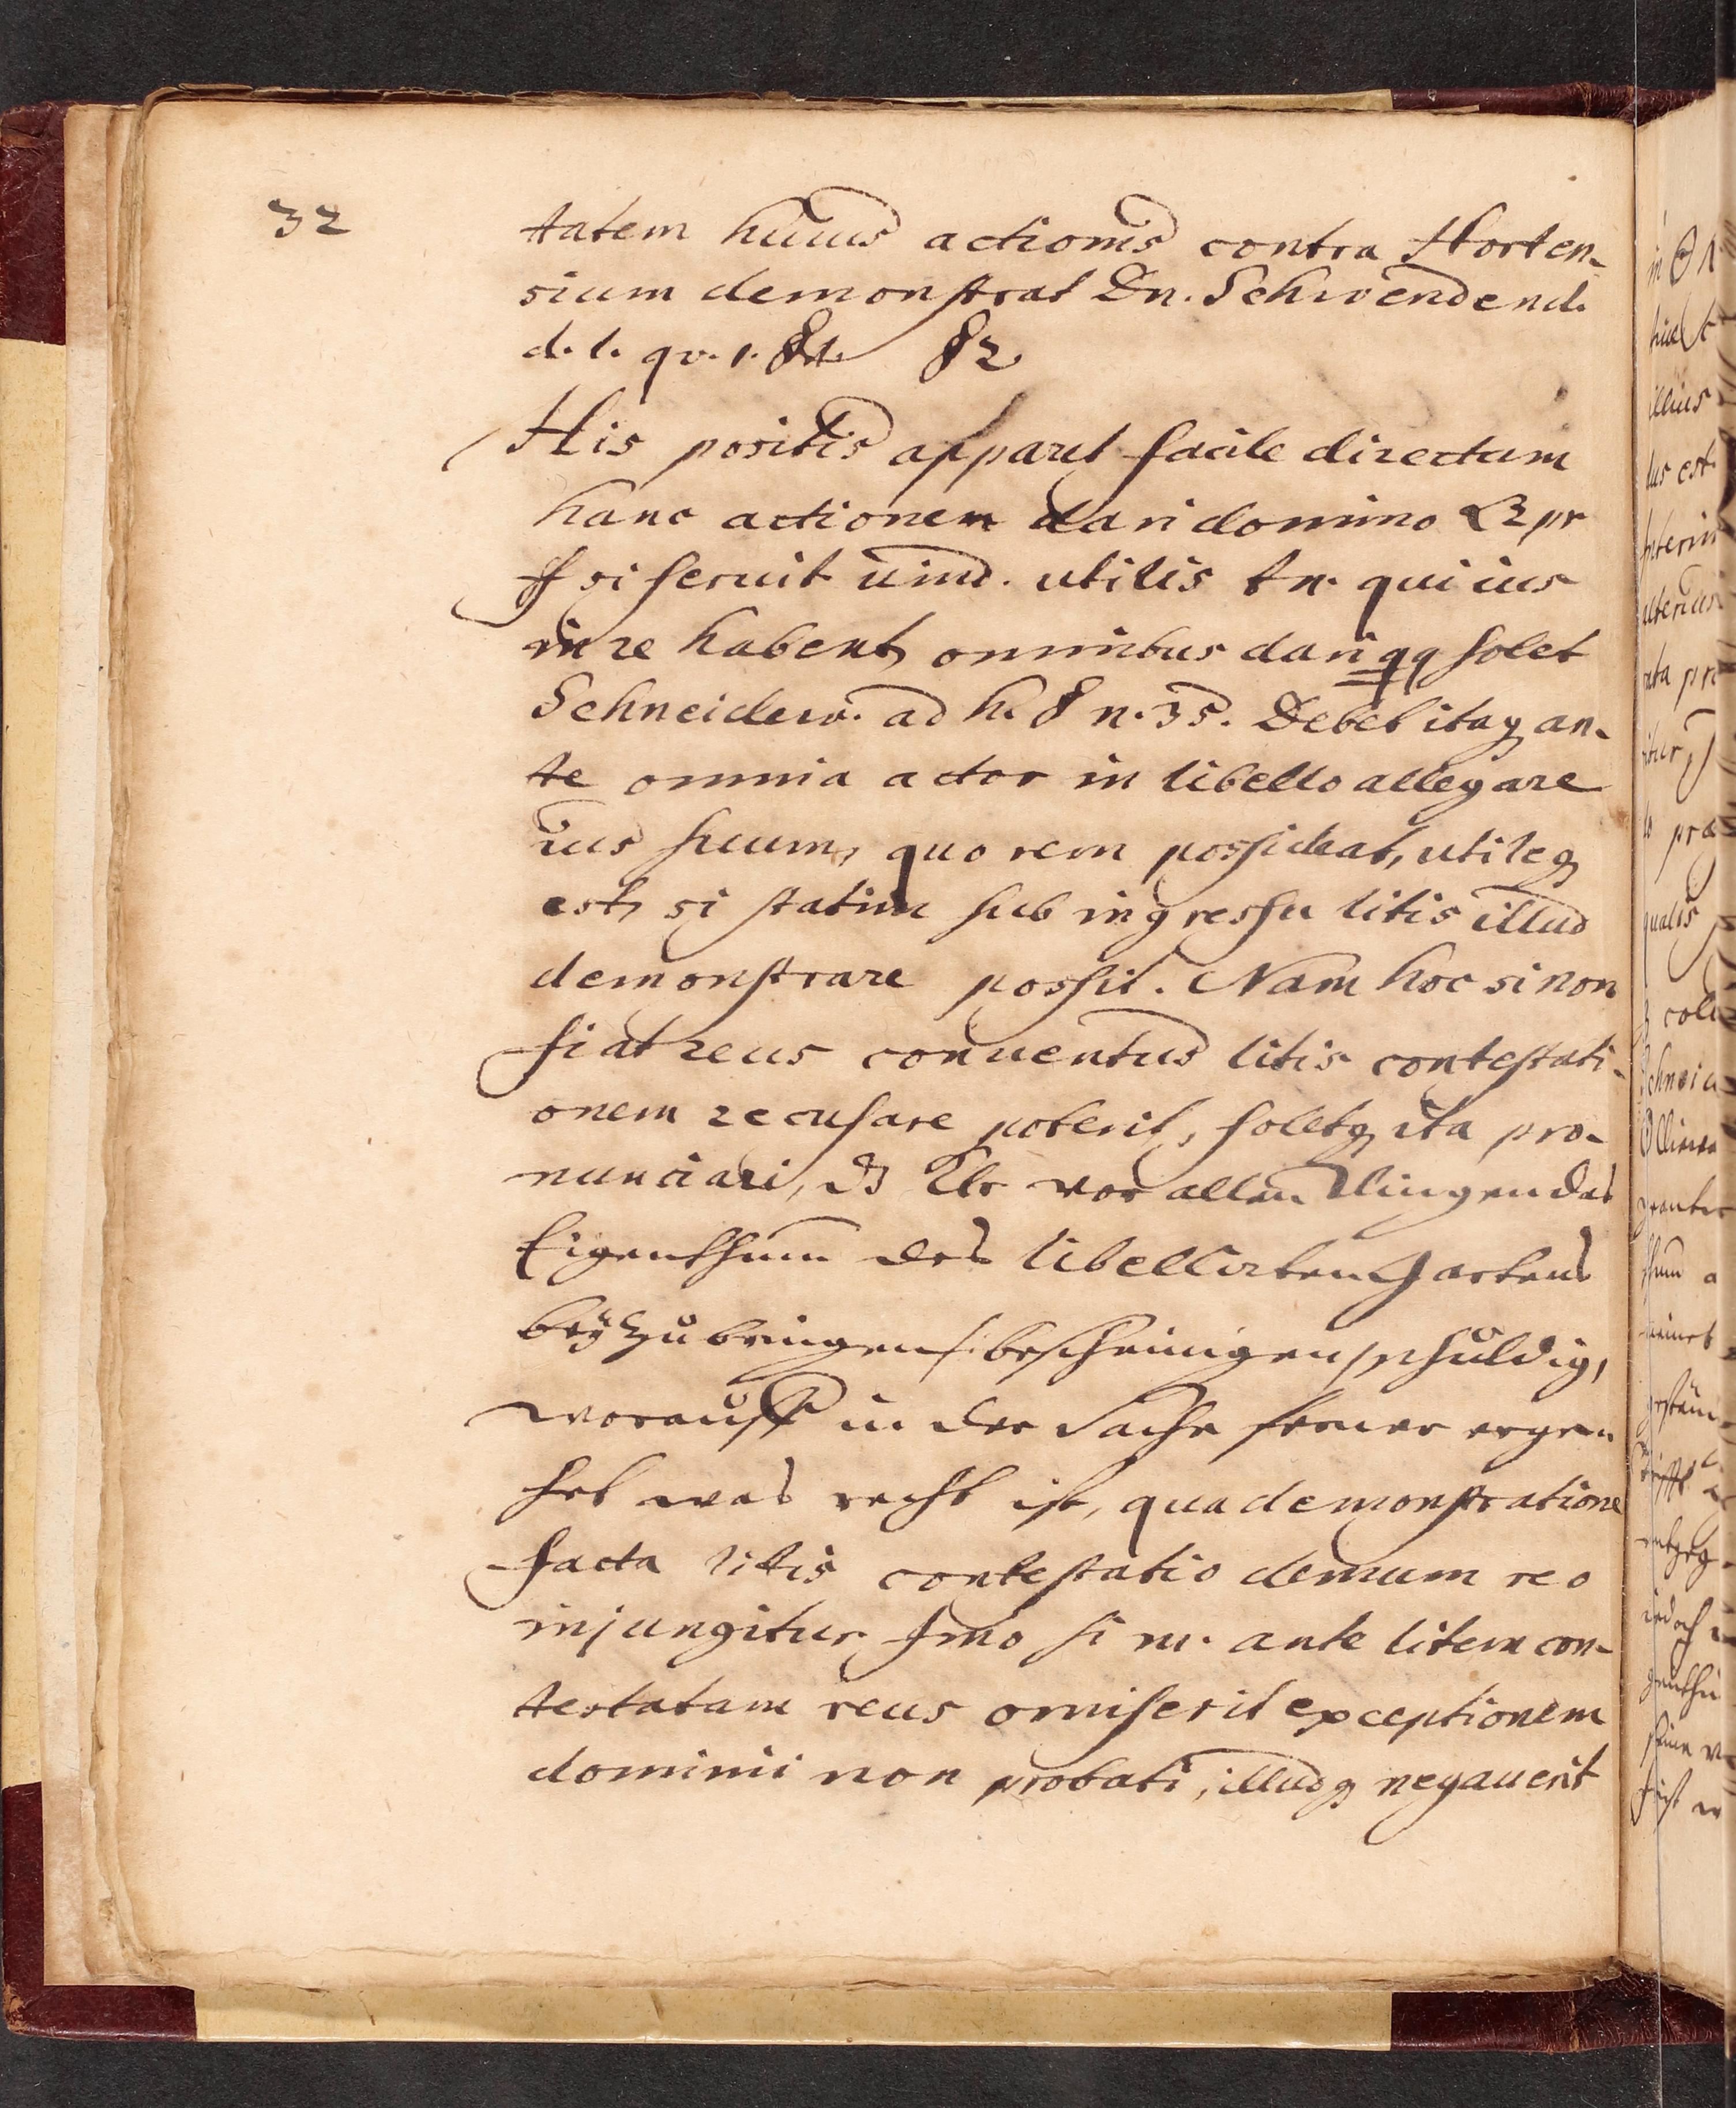 32
tatem huius actionis contra Horten-
sium demonstrat Dn. Schwendend.
d. l. qv. 1. §2
His positis apparet facile directam
hanc actionem dari domino L2 pr
ff si servit vind. utilis tn. qui ius
in re habent, omnibus dari qq solet
Schneidew. ad h. § n. 35. Debet itaq an-
te omnia actor in libello allegare
ius suum, quo rem possideat, utileq
est, si statim sub ingressu litis illud
demonstrare possit. Nam hoc si non
fiat reus conventus litis contestati-
onem recusare poterit, soletq ita pro-
nunciari, Klr vor allen Dingen das
Eigenthum des libellirten Gartens
beÿzubringen /: bescheinigen / schuldig,
worauff in der Sache ferner erge-
het was recht ist, qua demonstratione
facta litis contestatio demum reo
injungitur. Imo si n. ante litem con-
testatam reus omiserit exceptionem
dominii non probati, illudq negaverit